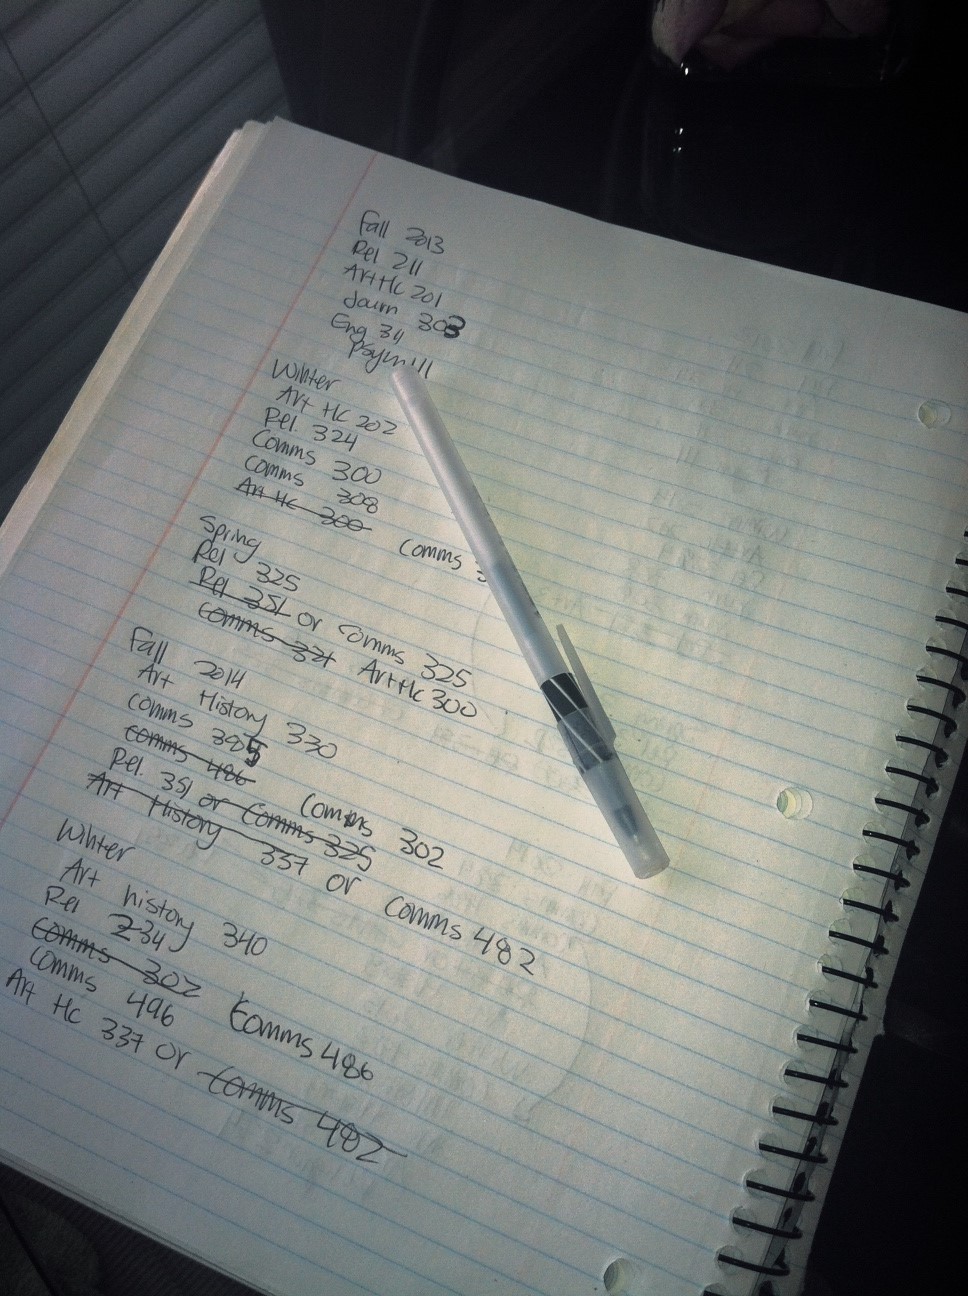 Fall 2013
Rel 211
Art Hc 201
Journ 303
Eng 311
Psym 111
Winter
Art Hc 202
Rel. 324
Comms 300
Comms 308
Art Hc 300 Comms
Spring
Rel 325
Rel 351 or Comms 325
Comms 321 Art Hc 300
Fall 2014
Art History 330
Comms 385
Comms 486 Comms 302
Rel. 351 or Comms 325
Art History 337 or Comms 482
Winter
Art history 340
Rel 234
Comms 302 Comms 486
Comms 496
Art Hc 337 or Comms 482